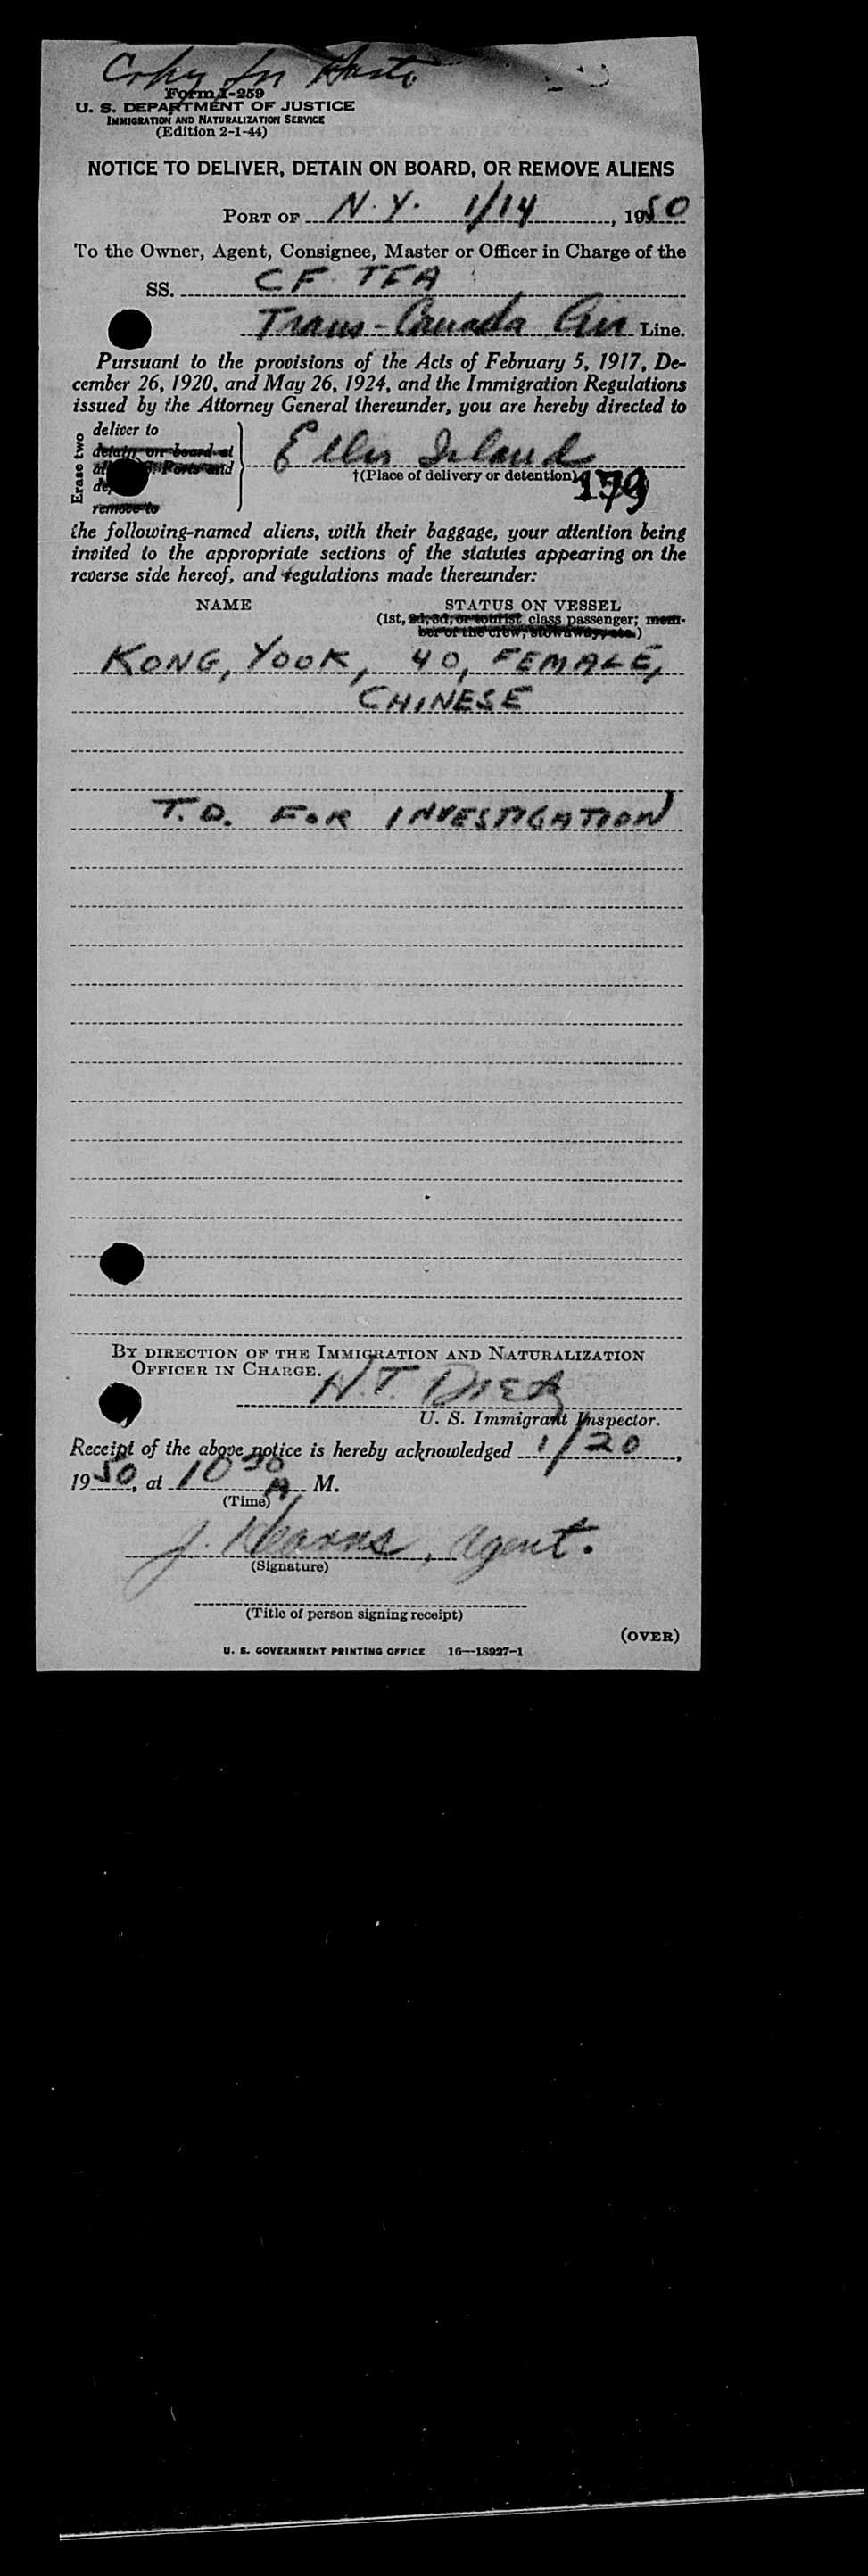 Copy
Form I-259
U. S. DEPARTMENT OF JUSTICE
IMMIGRATION AND NATURALIZATION SERVICE
(Edition 2-1-44)
NOTICE TO DELIVER, DETAIN ON BOARD, OR REMOVE ALIENS
PORT OF N.Y. 1/14, 1950
To the Owner, Agent, Consignee, Master or Officer in Charge of the
SS. CF-TFA
Trans-Canada Air Line.
Pursuant to the provisions of the Acts of February 5, 1917, De-
cember 26, 1920, and May 26, 1924, and the Immigration Regulations
issued by the Attorney General thereunder, you are hereby directed to
Erase two
deliver to
detain on board at
Ports and
remove to
Ellis Island
†(Place of delivery or detention)
179
the following-named aliens, with their baggage, your attention being
invited to the appropriate sections of the statutes appearing on the
reverse side hereof, and regulations made thereunder:
NAME STATUS ON VESSEL
(1st, 2d, 3d, or tourist class passenger; mem-
ber of the crew, stowaway, etc.)
KONG, YOOK, 40, FEMALE,
CHINESE
T.D. FOR INVESTIGATION
BY DIRECTION OF THE IMMIGRATION AND NATURALIZATION
OFFICER IN CHARGE.
H.T. Dietz
U. S. Immigrant Inspector.
Receipt of the above notice is hereby acknowledged 1/20,
1950, at 10 30 A M.
(Time)
J. Kearns, agent.
(Signature)
(Title of person signing receipt)
(OVER)
U. S. GOVERNMENT PRINTING OFFICE 16—18927-1